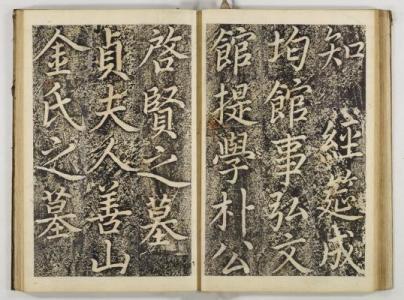 知 經筵成
均館事弘文
館提學朴公
啓賢之墓
貞夫人善山
金氏之墓